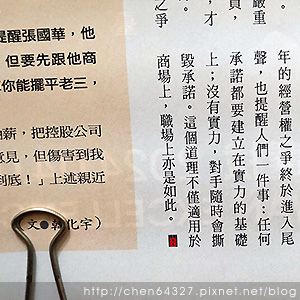 嚴重
，才
之爭
提醒張國華，他
但要先跟他商
你能擺平老三，
薪，把控股公司
意見，但傷害到我
到底！」上述親近
（文●韓化宇）
年的經營權之爭終於進入尾
聲，也提醒人們一件事：任何
承諾都要建立在實力的基礎
上；沒有實力，對手隨時會撕
毀承諾。這個道理不僅適用於
商場上，職場上亦是如此。
http://chen64327.pixnet.net/blog